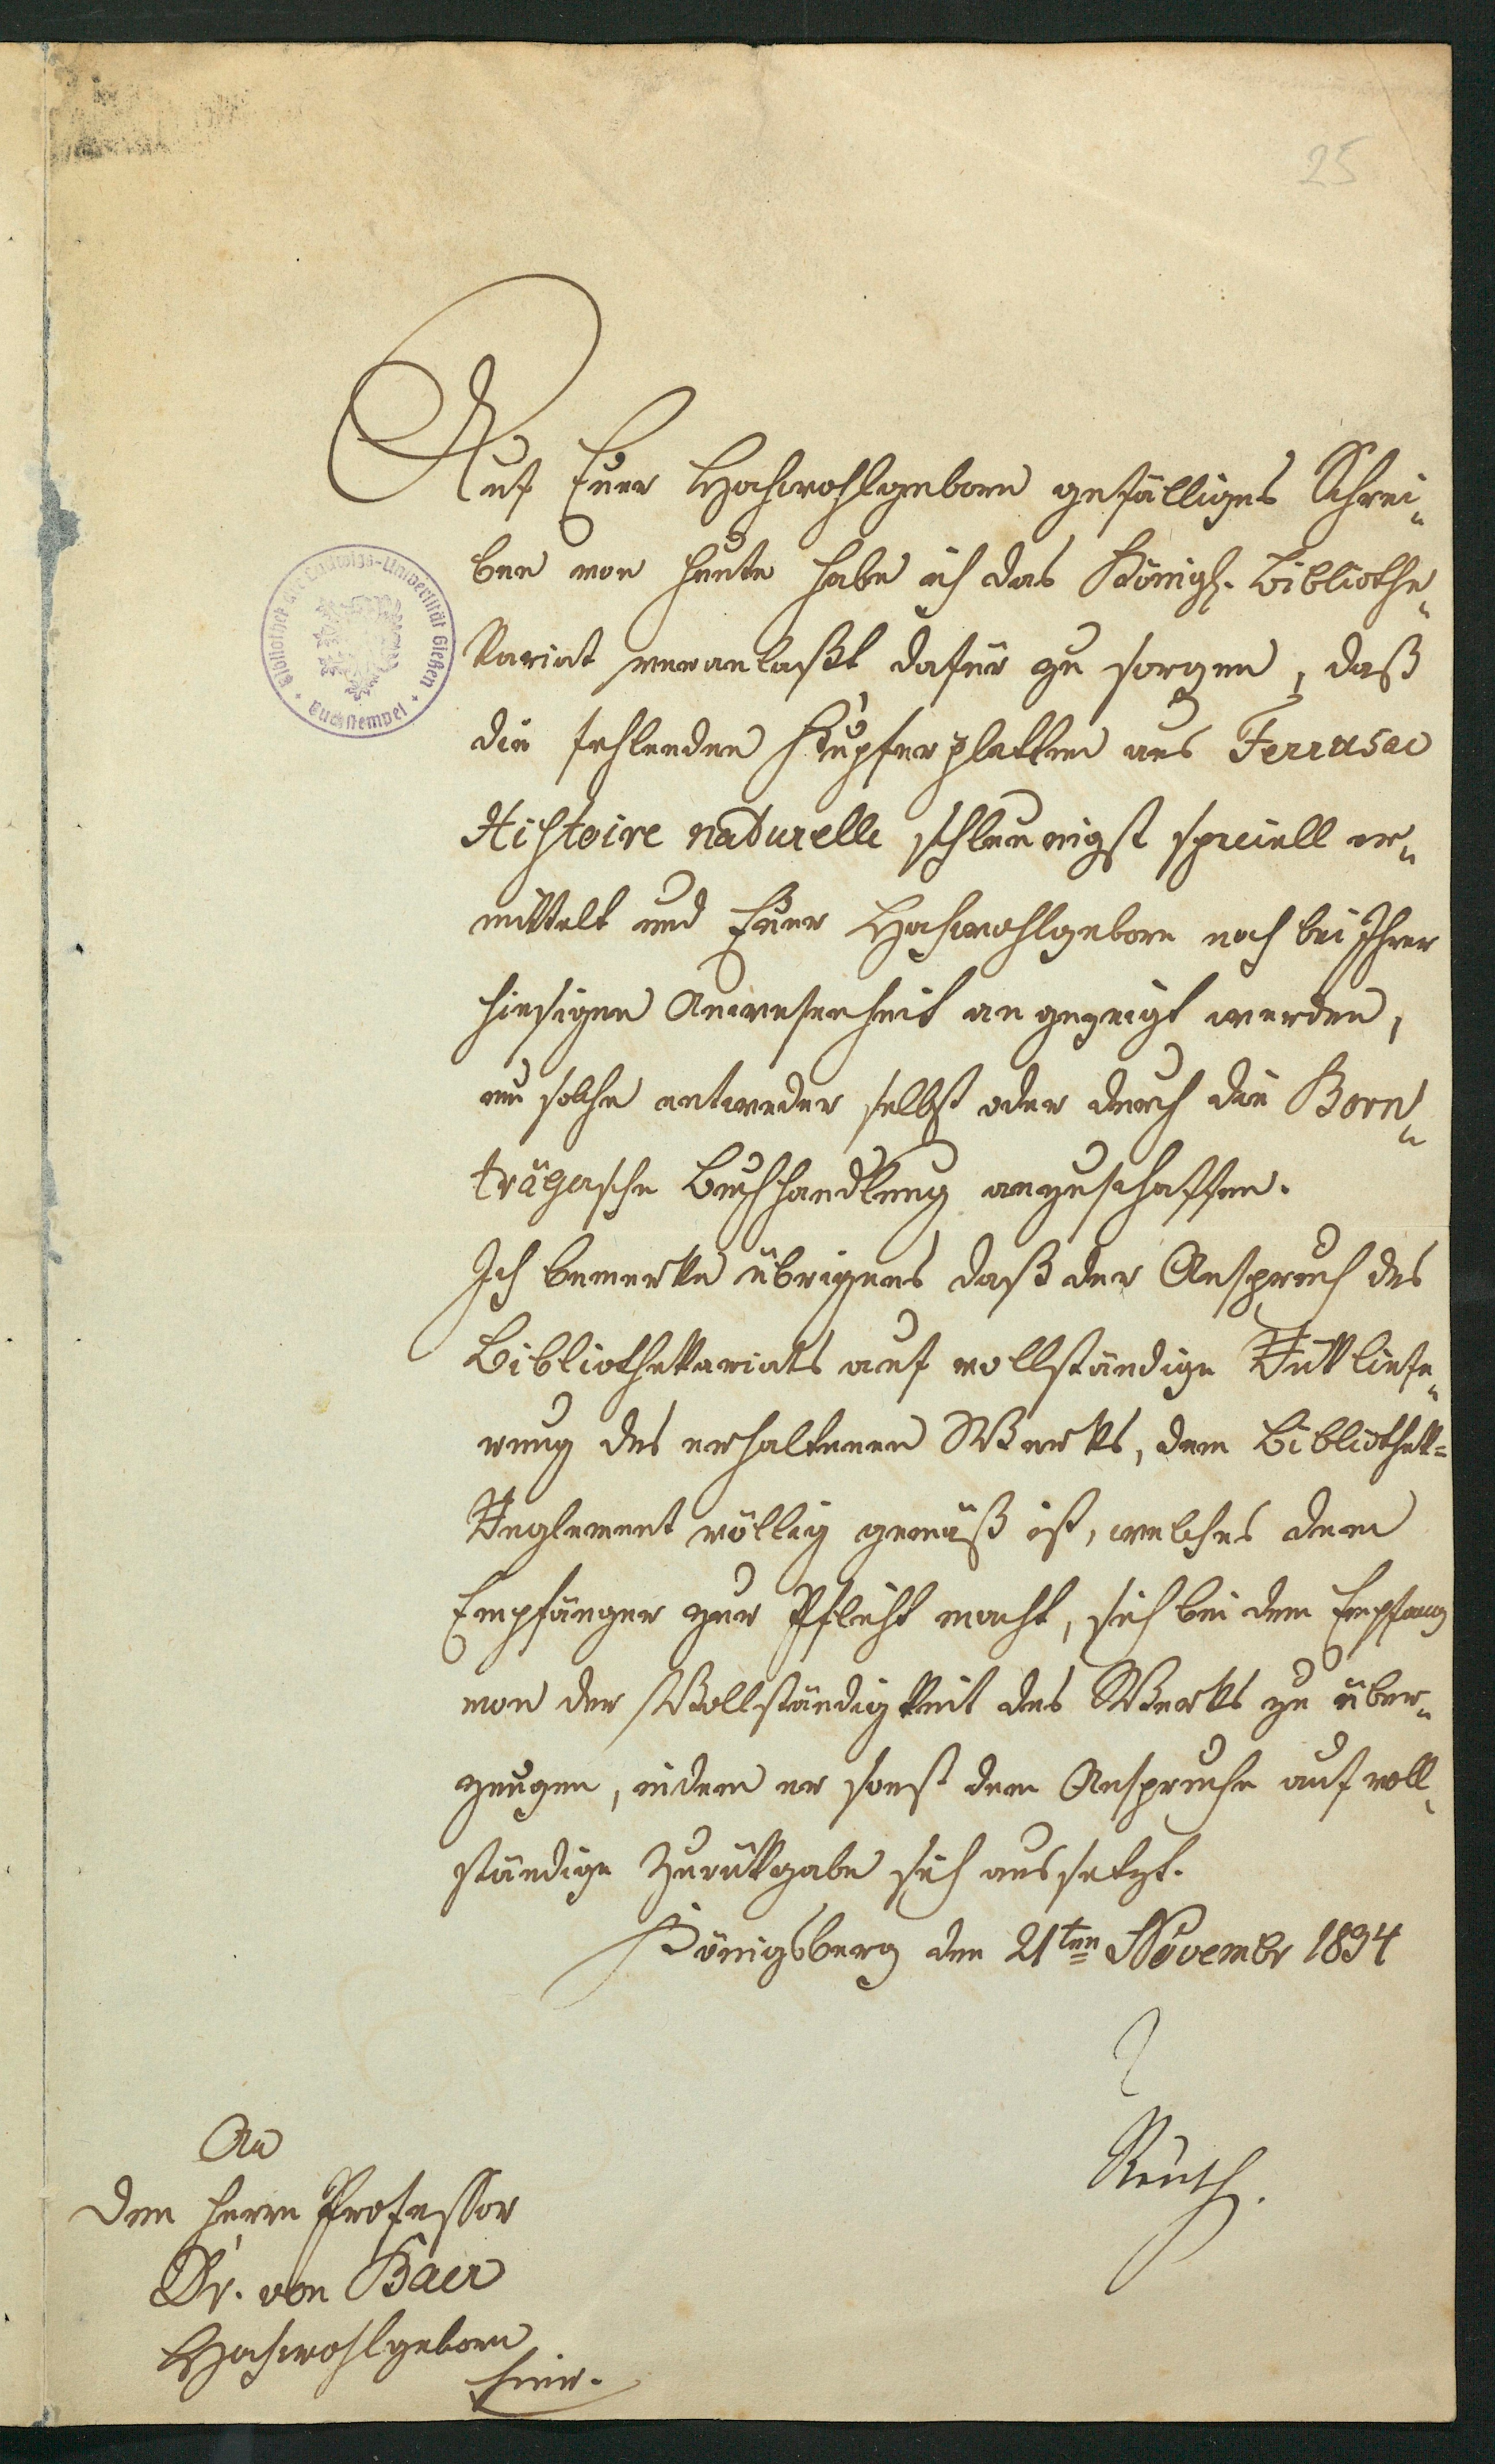 25
Auf Euer Hochwohlgeborn gefälliges Schrei-
ben von heute habe ich das Königl. Bibliothe-
kariat veranlaßt dafür zu sorgen, daß
die fehlenden Kupferplatten aus Ferrusac
Histoire naturelle schleunigst speciell er-
mittelt und Euer Hochwohlgeborn noch bei Ihrer
hiesigen Anwesenheit angezeigt werden,
um solche entweder selbst oder durch die Born-
trägersche Buchhandlung anzuschaffen.
Ich bemerke übrigens daß der Anspruch des
Bibliothekariats auf vollständige Rükliefe-
rung des erhaltenen Werks, dem Bibliothek-
Reglement völlig gemäß ist, welches dem
Empfänger zur Pflicht macht, sich bei dem Empfang
von der Vollständigkeit des Werks zu über-
zeugen, indem er sonst dem Anspruche auf voll-
ständige Zurükgabe sich aussetzt.
Königsberg den 21ten Novembr 1834
Reusch.
An
den Herrn Professor
Dr. von Baer
Hochwohlgeborn
hier.
Bibliothek der Ludwigs-Universität Gießen
Buchstempel